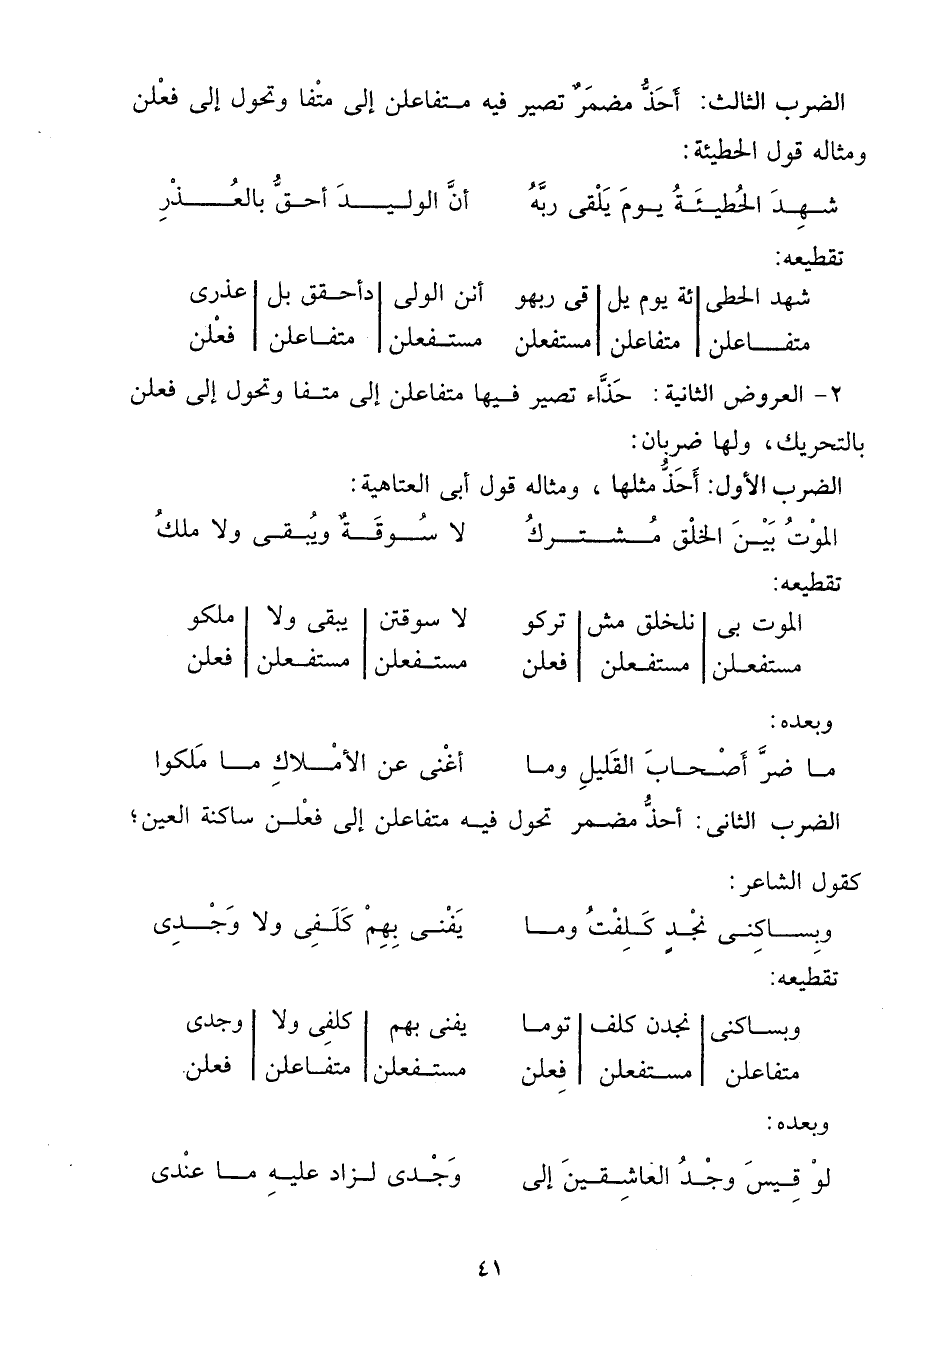 الضرب الثالث: أَحَذُّ مضمَرٌ تصير فيه متفاعلن إلى متْفا وتحول إلى فعْلن
ومثاله قول الحطيئة:
شهِدَ الحُطيئَةُ يومَ يَلْقى ربَّهُ أنَّ الوليدَ أحقُّ بالعُذْرِ
تقطيعه:
شهد الحطى | ئة يوم يل | قى ربهو أنن الولى | دأحقق بل | عذرى
متفاعلن | متفاعلن | مستفعلن مستفعلن | متفاعلن | فعْلن
٢- العروض الثانية: حَذَّاء تصير فيها متفاعلن إلى متفا وتحول إلى فعلن
بالتحريك، ولها ضربان:
الضرب الأول: أَحَذُّ مثلها، ومثاله قول أبى العتاهية:
الموْتُ بَيْنَ الخلْقِ مُشتركُ لا سُوقَةٌ ويُبقى ولا ملكُ
تقطيعه:
الموت بى | نلخلق مش | تركو لا سوقتن | يبقى ولا | ملكو
مستفعلن | مستفعلن | فعلن مستفعلن | مستفعلن | فعلن
وبعده:
ما ضرَّ أصْحابَ القَليلِ وما أغْنى عنِ الأمْلاك ما مَلكوا
الضرب الثانى: أحذُّ مضمر تحول فيه متفاعلن إلى فعْلن ساكنة العين؛
كقول الشاعر:
وبِساكِنِى نجْدٍ كَلِفْتُ وما يَفْنى بهِمْ كَلَفِى ولا وَجْدِى
تقطيعه:
وبساكنى | نجدن كلف | توما يفنى بهم | كلفِى ولا | وجدى
متفاعلن | مستفعلن | فعِلن مستفعلن | متفاعلن | فعلن
وبعده:
لوْ قِيسَ وجْدُ العاشِقينَ إلى وَجْدى لزاد عليهِ ما عنْدِى
٤١